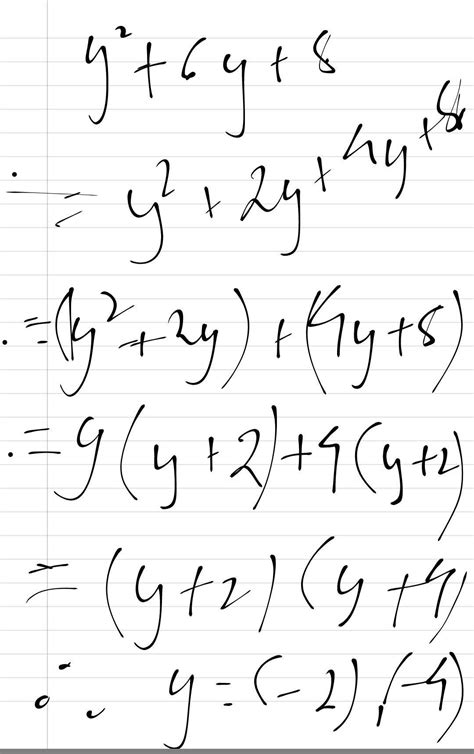 y² + 6y + 8
= y² + 2y + 4y + 8
= (y² + 2y) + (4y + 8)
= y(y + 2) + 4(y + 2)
= (y + 2)(y + 4)
∴ y = (-2), (-4)